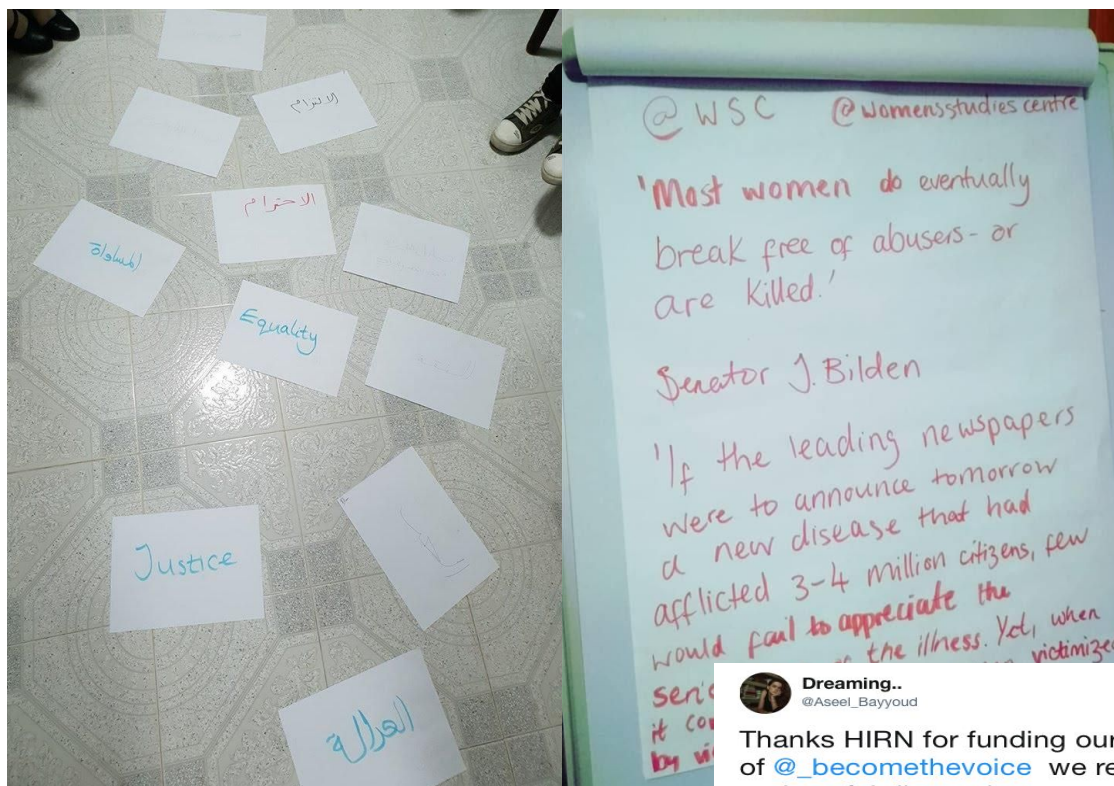 الالتزام
الاحترام
المساواة
Equality
Justice
العدالة
@ WSC @womensstudies centre
'Most women do eventually
break free of abusers - or
are killed.'
Senator J. Bilden
'If the leading newspapers
were to announce tomorrow
a new disease that had
afflicted 3-4 million citizens, few
would fail to appreciate the
the illness. Yet, when
victimize
it
by
Dreaming..
@Aseel_Bayyoud
Thanks HIRN for funding our
of @_becomethevoice we re